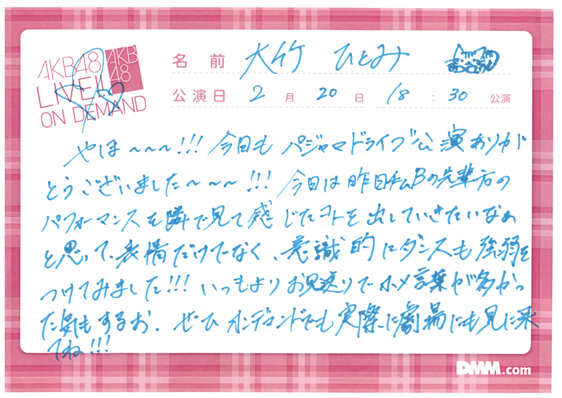 AKB48
LIVE!!
ON DEMAND
AKB
48
名前 大竹 ひとみ
公演日 2月20日 18:30 公演
やほ〜〜〜!!! 今日も パジャマドライブ公演ありが
とうございました〜〜〜!!! 今日は昨日チームBの先輩方の
パフォーマンスを隣で見て感じたコトを出していきたいなぁ
と思って、表情だけでなく、意識的にダンスも強弱を
つけてみました!!! いつもよりお見送りでホメ言葉が多かっ
た気もするお、ぜひオンデマンドでも実際に劇場にも見に来
てね!!!
DMM.com